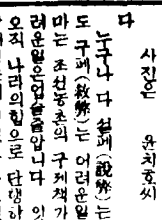 사진은 윤치호씨
다
누구나 다 설폐(說弊)는
도 구폐(救弊)는 어려운일
마는 조선농촌의 구제책가
려운일은업슬줄압니다 잇
오직 나라의힘으로 단행하